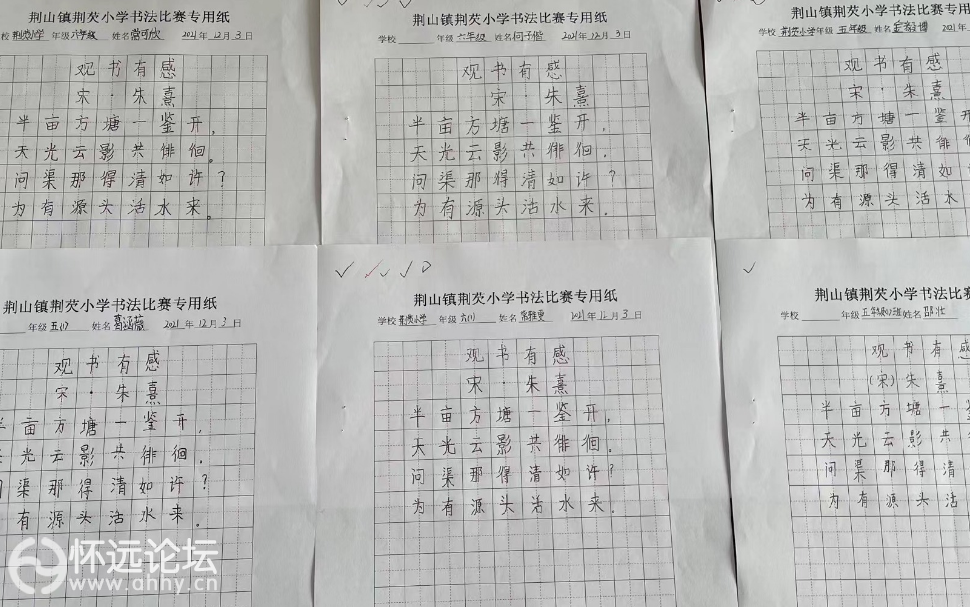 荆山镇荆芡小学书法比赛专用纸
学校 荆芡小学 年级 六年级 姓名 常可欣 2021年12月3日
观书有感
宋·朱熹
半亩方塘一鉴开,
天光云影共徘徊。
问渠那得清如许?
为有源头活水来。
荆山镇荆芡小学书法比赛专用纸
学校 年级 六年级 姓名 何子怡 2021年12月3日
观书有感
宋·朱熹
半亩方塘一鉴开,
天光云影共徘徊.
问渠那得清如许?
为有源头活水来.
荆山镇荆芡小学书法比
学校 荆芡小学 年级 五年级 姓名 2021年
观书有感
宋·朱熹
半亩方塘一鉴开
天光云影共徘
问渠那得清如
为有源头活水
荆山镇荆芡小学书法比赛专用纸
年级 五(1) 姓名 葛涵蕊 2021年12月3日
观书有感
宋·朱熹
半亩方塘一鉴开,
光云影共徘徊.
渠那得清如许?
有源头活水来.
荆山镇荆芡小学书法比赛专用纸
学校 荆芡小学 年级 六(1) 姓名 2021年12月3日
观书有感
宋·朱熹
半亩方塘一鉴开.
天光云影共徘徊.
问渠那得清如许?
为有源头活水来.
荆山镇荆芡小学书法比
学校 年级 五年级(1)班 姓名 邵壮
观书有感
(宋)朱熹
半亩方塘一
天光云影共
问渠那得清
为有源头活
怀远论坛
www.ahhy.cn